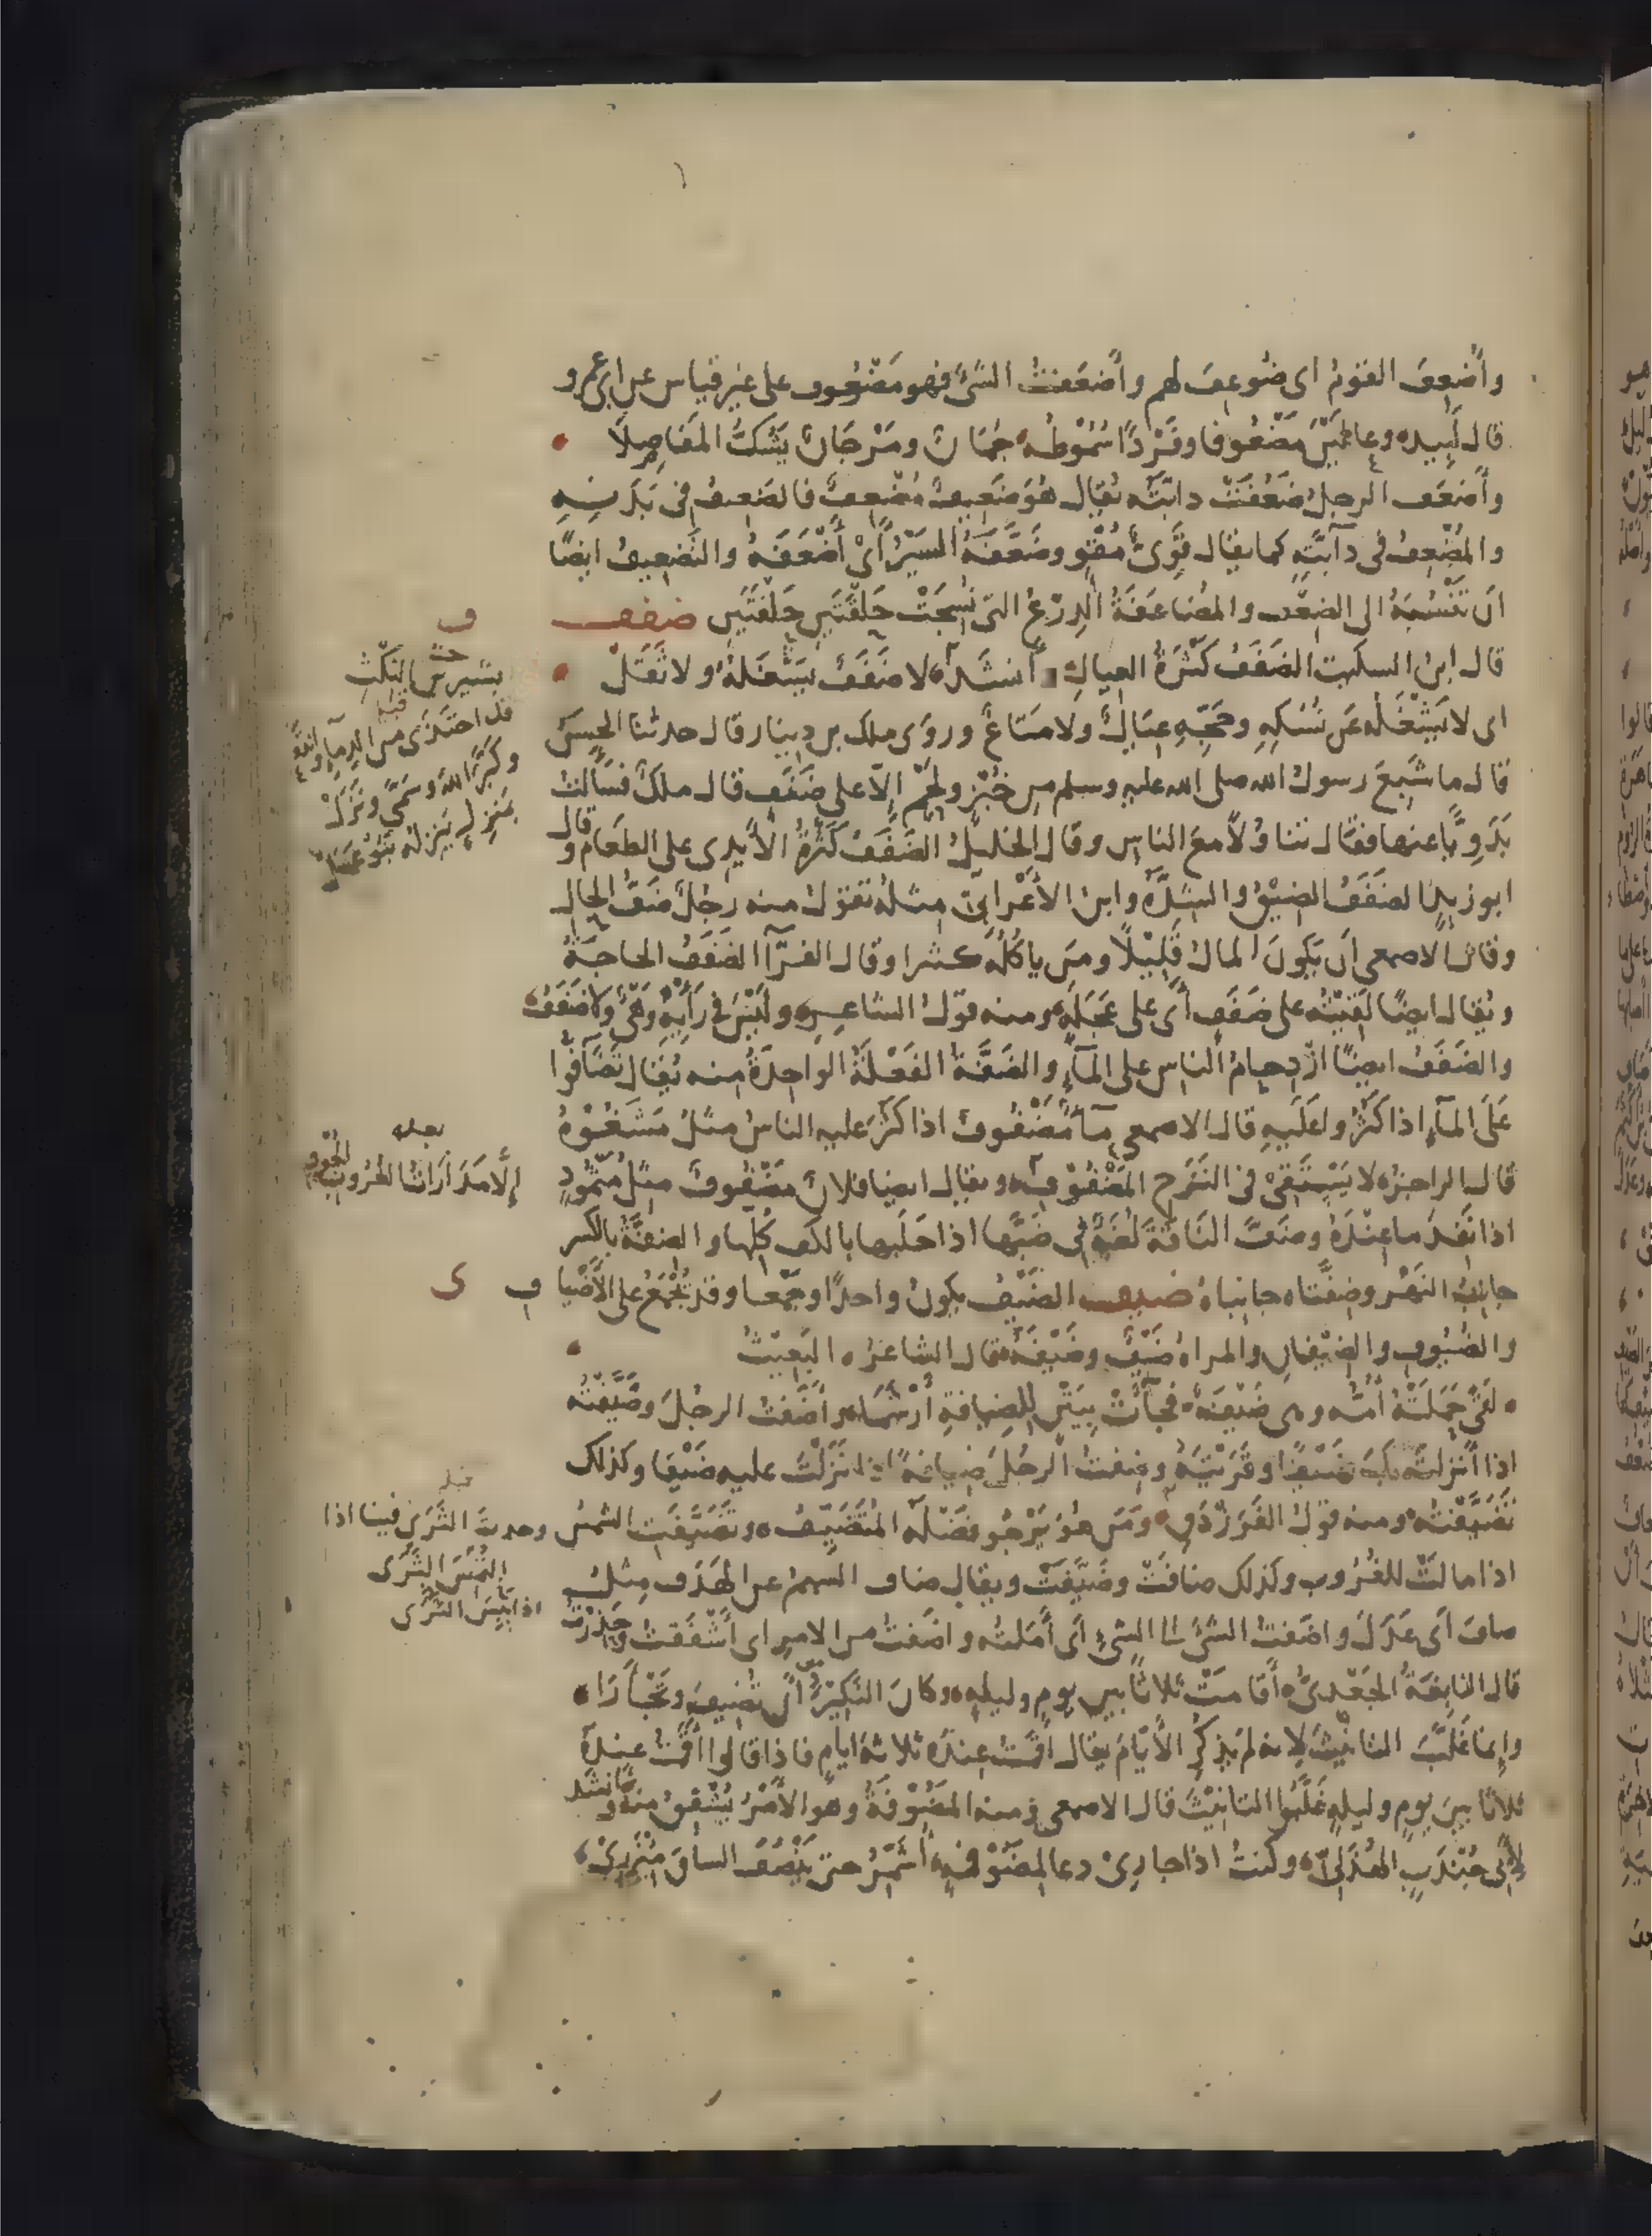 وأُضعِفَ القومُ اى ضُوعِفَ لهم وأَضعَفتُ الشَّىَ فهو مَضْعُوف على غير قياس عن ابى عمرو
قال لَبِيد وعالَيْنَ مَضْعُوفا وفَرْدًا سُمُوْطُه جُمَانٌ ومَرْجَانٌ يَشُكُّ المَفَاصِلَا
وأَضعَف الرجلُ ضَعُفَتْ دابّتُه يُقال هُوَ ضَعِيفٌ مُضْعِفٌ فالضعيفُ فى بَدَنِهِ
والمُضْعِفُ فى دآبّتِه كما يقال قَوِىٌّ مُقْوٍ وضَعَّفَهُ السَيْرُ اَىْ أَضْعَفَهُ والتَضعِيفُ ايضًا
اَن تَنْسُبَهُ الى الضعْف والمُضاعَفَةُ الدِرْعُ التى نُسِجَتْ حَلْقَتَينِ حَلْقَتَينِ ضفف
قال ابنُ السكيت الضَفَفُ كَثْرَةُ العيالِ أنشَدَ لا ضَفَفٌ يَشْغَلُهُ ولا ثَقَلْ
اى لا يَشْغَلُه عَن نُسُكِهِ وحَجِّهِ عِيَالٌ ولا مَتَاعٌ وروَى ملك بن دينار قال حدثنا الحسَنُ
قال ما شَبِعَ رسول الله صلى الله عليه وسلم من خُبْزٍ ولَحْمٍ إلّا على ضَفَفٍ قال ملك فسَأَلتُ
بَدَوِيًّا عنها فقال تناوُلاً معَ الناسِ وقال الخليلُ الضَفَفُ كَثْرَةُ الأَيْدى على الطعَام وقال
ابو زيد الضَفَفُ الضِيْقُ والشِدَّةُ وابنُ الأَعْرابِىّ مِثلهُ تقول منه رجُلٌ ضَفُّ الحالِ
وقال الاصمعى اَن يَكونَ المالُ قَلِيْلاً ومَن ياكُلُه كثيرا وقال الفَرَّآ الضَفَفُ الحاجَةُ
ويُقال ايضًا لَقِيْتُه على ضَفَفٍ أَى على عَجَلَةٍ ومنه قولُ الشاعِر ولَيْسَ فى رَأْيِهِ وَهْىٌ ولا ضَفَفُ
والضَفَفُ ايضًا ازْدِحامُ الناسِ على المآءِ والضَفَّةُ الفَعْلَةُ الواحِدَةُ منه يُقال تَضَآفّوا
عَلَى المآءِ اذا كَثُرُوا عَلَيهِ قال الاصمعى مآءٌ مَضْفُوفٌ اذا كَثُرَ عليه الناسُ مثلُ مَشفُوهٌ
قال الراجز لا يَسْتَقِى فى النَزَحِ المَضْفُوْفِ ويقال ايضا فلانٌ مَضْفُوفٌ مِثلُ مَثْمُودٍ
اذا نَفِدَ ما عِنْدَهُ وضَفَّ النَاقَةَ لُغَةٌ فى ضَبَّها اذا حَلَبها بالكف كُلِّها والضِفَّةُ بالكسر
جانِبُ النَهْر وضِفّتاه جانباهُ ضيف الضَيْفُ يكونُ واحدًا وجَمعا وقد يُجْمَعُ على الأَضْيا ف
والضُيُوفِ والضِيْفانِ والمراةُ ضَيْفٌ وضَيْفَةٌ قال الشاعرُ البَعِيْثُ
لَقًى حَمَلَتْهُ أُمُّه وهى ضَيْفَةٌ فجآءَتْ بِيَتْنٍ للضِيافةِ أَرْشَمَا وأَضَفتُ الرجُلَ وضَيَّفْتُه
اذا أَنزلتَه بك ضَيْفًا وقَرَيْتَهُ وضِفتُ الرجُلَ ضِيافةً اذا نَزَلْتَ عليه ضَيْفا وكذلك
تَضَيَّفتُه ومنه قولُ الفَرَزْدَقِ ومَن هُوَ يَرْجُو فَضْلَه المُتَضَيِّفُ وتَضَيَّفَتِ الشمسُ
اذا مالتْ للغُرُوبِ وكذلك ضافَتْ وضَيَّفَتْ ويقال ضاف السهمُ عن الهَدَفِ مِثلُ
صاف أَى عَدَلَ واضَفتُ الشىَ الى الشىءِ اَى أَمَلتُه واضَفتُ من الامرِ اى أَشْفَقتُ وحَذِرْتُ
قال النابِغةُ الجَعْدىُّ أَقامَتْ ثَلاثًا بين يومٍ وليلةٍ وكان النَكِيْرُ أَنْ تُضِيفَ وتَجْأَرَا
وإنما غَلَّبَ التانيْثَ لِانه لم يَذكُرِ الأَيّامَ يقال اَقَمتُ عندَهُ ثلاثةَ ايامٍ فاذا قالوا أَقَمتُ عندَهُ
ثلاثًا بينَ يومٍ وليلةٍ غَلَّبُوا التانيْثَ قال الاصمعى ومنه المَضُوْفَةُ وهو الأَمْرُ يُشْفَقُ منه وانشد
لِأَبِى جُنْدَبٍ الهُذَلىّ وكنتُ اذا جارِىْ دعا لِمَضُوْفةٍ أُشَمِّرُ حتى يَنْصُفَ الساقَ مِئْزَرِىْ
ف
بشير بن النِكْثِ
قبله
قد احتَذَى من الدمآءِ وانتَعَلْ
وكَبَّرَ اللهَ وسَمَّى ونَزَلْ
بمنزِلٍ يَنزِلُه بَنُو عَمَلْ
بعده
إلّا مُدَاراتُ الغُروبِ الجُوْفِ
ى
قبله